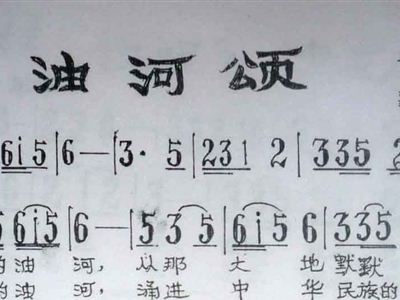 油河颂
6i5|6—|3·5|231 2|335 2
5 6i5|6—|5 3 5|6i5 6|335
的油河,从那大地默默
的油河,涌进中华民族的